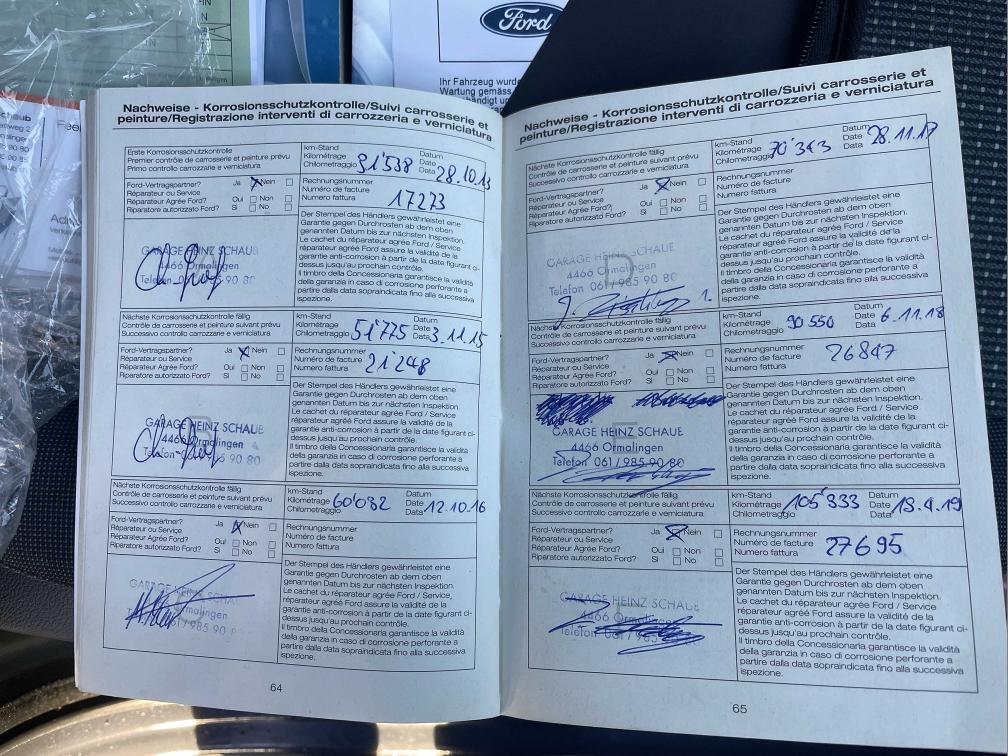 Ford
Ihr Fahrzeug wurde
Wartung gemäss
Nachweise - Korrosionsschutzkontrolle/Suivi carrosserie et
peinture/Registrazione interventi di carrozzeria e verniciatura
Erste Korrosionskontrolle
Premier contrôle de carrosserie et peinture prévu
Primo controllo carrozzeria e verniciatura
km-Stand
Kilométrage 31'538
Chilometraggio
Datum
Date 28.10.13
Data
Ford-Vertragspartner? Ja Nein
Réparateur ou Service
Réparateur Agrée Ford? Oui Non
Riparatore autorizzato Ford? Si No
Rechnungsnummer
Numéro de facture 17273
Numero fattura
GARAGE HEINZ SCHAUB
4466 Ormalingen
Telefon 90 80
Der Stempel des Händlers gewährleistet eine
Garantie gegen Durchrosten ab dem oben
genannten Datum bis zur nächsten Inspektion.
Le cachet du réparateur agrée Ford / Service
réparateur agrée Ford assure la validité de la
garantie anti-corrosion à partir de la date figurant ci-
dessus jusqu'au prochain contrôle.
Il timbro della Concessionaria garantisce la validità
della garanzia in caso di corrosione perforante a
partire dalla data sopraindicata fino alla successiva
ispezione.
Nächste Korrosionskontrolle fällig
Contrôle de carrosserie et peinture suivant prévu
Successivo controllo carrozzerie e verniciatura
km-Stand
Kilométrage 51'725
Chilometraggio
Datum
Date 3.11.15
Data
Ford-Vertragspartner? Ja Nein
Réparateur ou Service
Réparateur Agrée Ford? Oui Non
Riparatore autorizzato Ford? Si No
Rechnungsnummer
Numéro de facture 21'248
Numero fattura
GARAGE HEINZ SCHAUB
4466 Ormalingen
Telefon 985 90 80
Der Stempel des Händlers gewährleistet eine
Garantie gegen Durchrosten ab dem oben
genannten Datum bis zur nächsten Inspektion.
Le cachet du réparateur agrée Ford / Service
réparateur agrée Ford assure la validité de la
garantie anti-corrosion à partir de la date figurant ci-
dessus jusqu'au prochain contrôle.
Il timbro della Concessionaria garantisce la validità
della garanzia in caso di corrosione perforante a
partire dalla data sopraindicata fino alla successiva
ispezione.
Nächste Korrosionskontrolle fällig
Contrôle de carrosserie et peinture suivant prévu
Successivo controllo carrozzerie e verniciatura
km-Stand
Kilométrage 60'032
Chilometraggio
Datum
Date 12.10.16
Data
Ford-Vertragspartner? Ja Nein
Réparateur ou Service
Réparateur Agrée Ford? Oui Non
Riparatore autorizzato Ford? Si No
Rechnungsnummer
Numéro de facture
Numero fattura
GARAGE HEINZ SCHAU
Ormalingen
061 / 985 90
Der Stempel des Händlers gewährleistet eine
Garantie gegen Durchrosten ab dem oben
genannten Datum bis zur nächsten Inspektion.
Le cachet du réparateur agrée Ford / Service
réparateur agrée Ford assure la validité de la
garantie anti-corrosion à partir de la date figurant ci-
dessus jusqu'au prochain contrôle.
Il timbro della Concessionaria garantisce la validità
della garanzia in caso di corrosione perforante a
partire dalla data sopraindicata fino alla successiva
ispezione.
64
Nachweise - Korrosionsschutzkontrolle/Suivi carrosserie et
peinture/Registrazione interventi di carrozzeria e verniciatura
Nächste Korrosionskontrolle fällig
Contrôle de carrosserie et peinture suivant prévu
Successivo controllo carrozzerie e verniciatura
km-Stand
Kilométrage 70'343
Chilometraggio
Datum
Date 28.11.17
Data
Ford-Vertragspartner? Ja Nein
Réparateur ou Service
Réparateur Agrée Ford? Oui Non
Riparatore autorizzato Ford? Si No
Rechnungsnummer
Numéro de facture
Numero fattura
GARAGE HEINZ SCHAUE
4466 Ormalingen
Telefon 061 / 985 90 80
Der Stempel des Händlers gewährleistet eine
Garantie gegen Durchrosten ab dem oben
genannten Datum bis zur nächsten Inspektion.
Le cachet du réparateur agrée Ford / Service
réparateur agrée Ford assure la validité de la
garantie anti-corrosion à partir de la date figurant ci-
dessus jusqu'au prochain contrôle.
Il timbro della Concessionaria garantisce la validità
della garanzia in caso di corrosione perforante a
partire dalla data sopraindicata fino alla successiva
ispezione.
Nächste Korrosionskontrolle fällig
Contrôle de carrosserie et peinture suivant prévu
Successivo controllo carrozzerie e verniciatura
km-Stand
Kilométrage 90 550
Chilometraggio
Datum
Date 6.11.18
Data
Ford-Vertragspartner? Ja Nein
Réparateur ou Service
Réparateur Agrée Ford? Oui Non
Riparatore autorizzato Ford? Si No
Rechnungsnummer
Numéro de facture 26847
Numero fattura
GARAGE HEINZ SCHAUE
4466 Ormalingen
Telefon 061 / 985 90 80
Der Stempel des Händlers gewährleistet eine
Garantie gegen Durchrosten ab dem oben
genannten Datum bis zur nächsten Inspektion.
Le cachet du réparateur agrée Ford / Service
réparateur agrée Ford assure la validité de la
garantie anti-corrosion à partir de la date figurant ci-
dessus jusqu'au prochain contrôle.
Il timbro della Concessionaria garantisce la validità
della garanzia in caso di corrosione perforante a
partire dalla data sopraindicata fino alla successiva
ispezione.
Nächste Korrosionskontrolle fällig
Contrôle de carrosserie et peinture suivant prévu
Successivo controllo carrozzerie e verniciatura
km-Stand
Kilométrage 105'333
Chilometraggio
Datum
Date 19.
Data
Ford-Vertragspartner? Ja Nein
Réparateur ou Service
Réparateur Agrée Ford? Oui Non
Riparatore autorizzato Ford? Si No
Rechnungsnummer
Numéro de facture 27695
Numero fattura
GARAGE HEINZ SCHAUE
4466 Ormalingen
Telefon 061 / 985
Der Stempel des Händlers gewährleistet eine
Garantie gegen Durchrosten ab dem oben
genannten Datum bis zur nächsten Inspektion.
Le cachet du réparateur agrée Ford / Service
réparateur agrée Ford assure la validité de la
garantie anti-corrosion à partir de la date figurant ci-
dessus jusqu'au prochain contrôle.
Il timbro della Concessionaria garantisce la validità
della garanzia in caso di corrosione perforante a
partire dalla data sopraindicata fino alla successiva
ispezione.
65